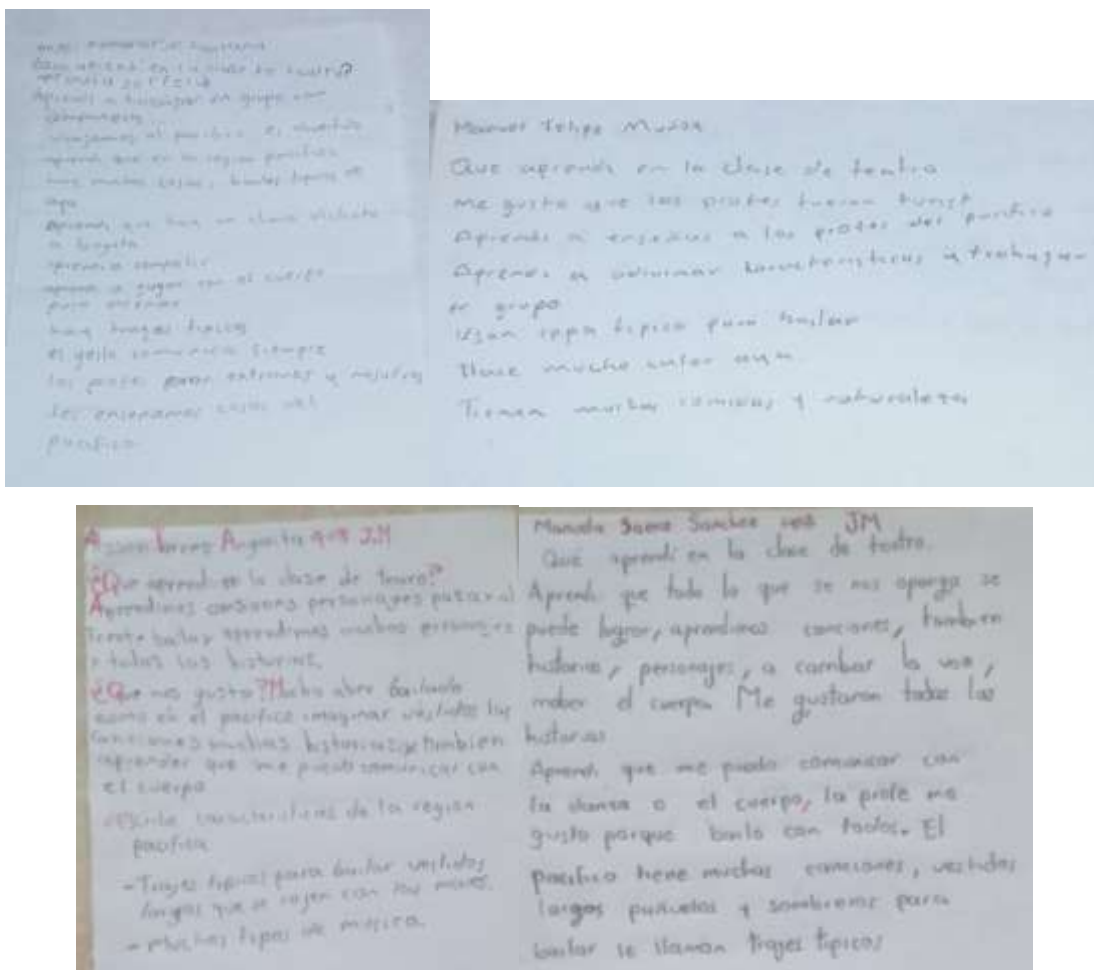 Que aprendi en la clase de teatro?
Aprendi a trabajar en grupo con
viajamos al pacifico es divertido
aprendi que en la region pacifica
hay muchas cosas, bailes tipicos de
Aprendi que hay un clima distinto
a bogota
aprendi a compartir
aprendi a jugar con el cuerpo
hay trajes tipicos
el baile comunica siempre
los profes eran extranos y nosotros
les ensenamos cosas del
pacifico
Manuel Felipe Muñoz
Que aprendi en la clase de teatro
me gusto que los profes fueran turist
Aprendi a enseñar a los profes del pacifico
Aprendi a adivinar caracteristicas a trabajar
en grupo
Usan ropa tipica para bailar
Hace mucho calor aya
Tienen muchas comidas y naturaleza
JM
¿Que aprendi en la clase de teatro?
Aprendimos cansiones personajes pasar al
frente bailar aprendimos muchos personajes
y todas las historias.
¿Que nos gusto? Mucho aber bailado
como en el pacifico imaginar vestidos las
canciones muchas historias y tambien
aprender que me puedo comunicar con
el cuerpo
caracteristicas de la region
pacifica
- Trajes tipicos para bailar vestidos
largos que se cojen con las manos.
- Muchos tipos de musica.
Manuela Saenz Sanchez JM
Que aprendi en la clase de teatro.
Aprendi que todo lo que se nos oponga se
puede lograr, aprendimos canciones, tambien
historias, personajes, a cambiar la voz,
mober el cuerpo. Me gustaron todas las
historias
Aprendi que me puedo comunicar con
la danza o el cuerpo, la profe me
gusto porque bailo con todos. El
pacifico tiene muchas canciones, vestidos
largos pañuelos y sombreros para
bailar se llaman trajes tipicos